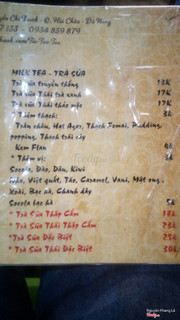 Chí Thanh - Q. Hải Châu - Đà Nẵng
- 0934 859 879
MILK TEA - TRÀ SỮA
Trà sữa truyền thống 12K
Trà sữa Thái trà xanh 17K
Trà sữa Thái thảo mộc 17K
* Thêm thạch: 3K
Trân châu, Hạt Agar, Thạch Fomai, Pudding,
popping, Thạch trái cây
Kem Flan
* Thêm vị: 3K
Socola, Đào, Dâu, Kiwi
Nho, Việt quất, Táo, Caramel, Vani, Mật ong,
Xoài, Bạc hà, Chanh dây
Socola bạc hà 5K
* Trà Sữa Thập Cẩm 18K
* Trà Sữa Thái Thập Cẩm 23K
* Trà Sữa Đặc Biệt 25K
* Trà Sữa Thái Đặc Biệt 30K